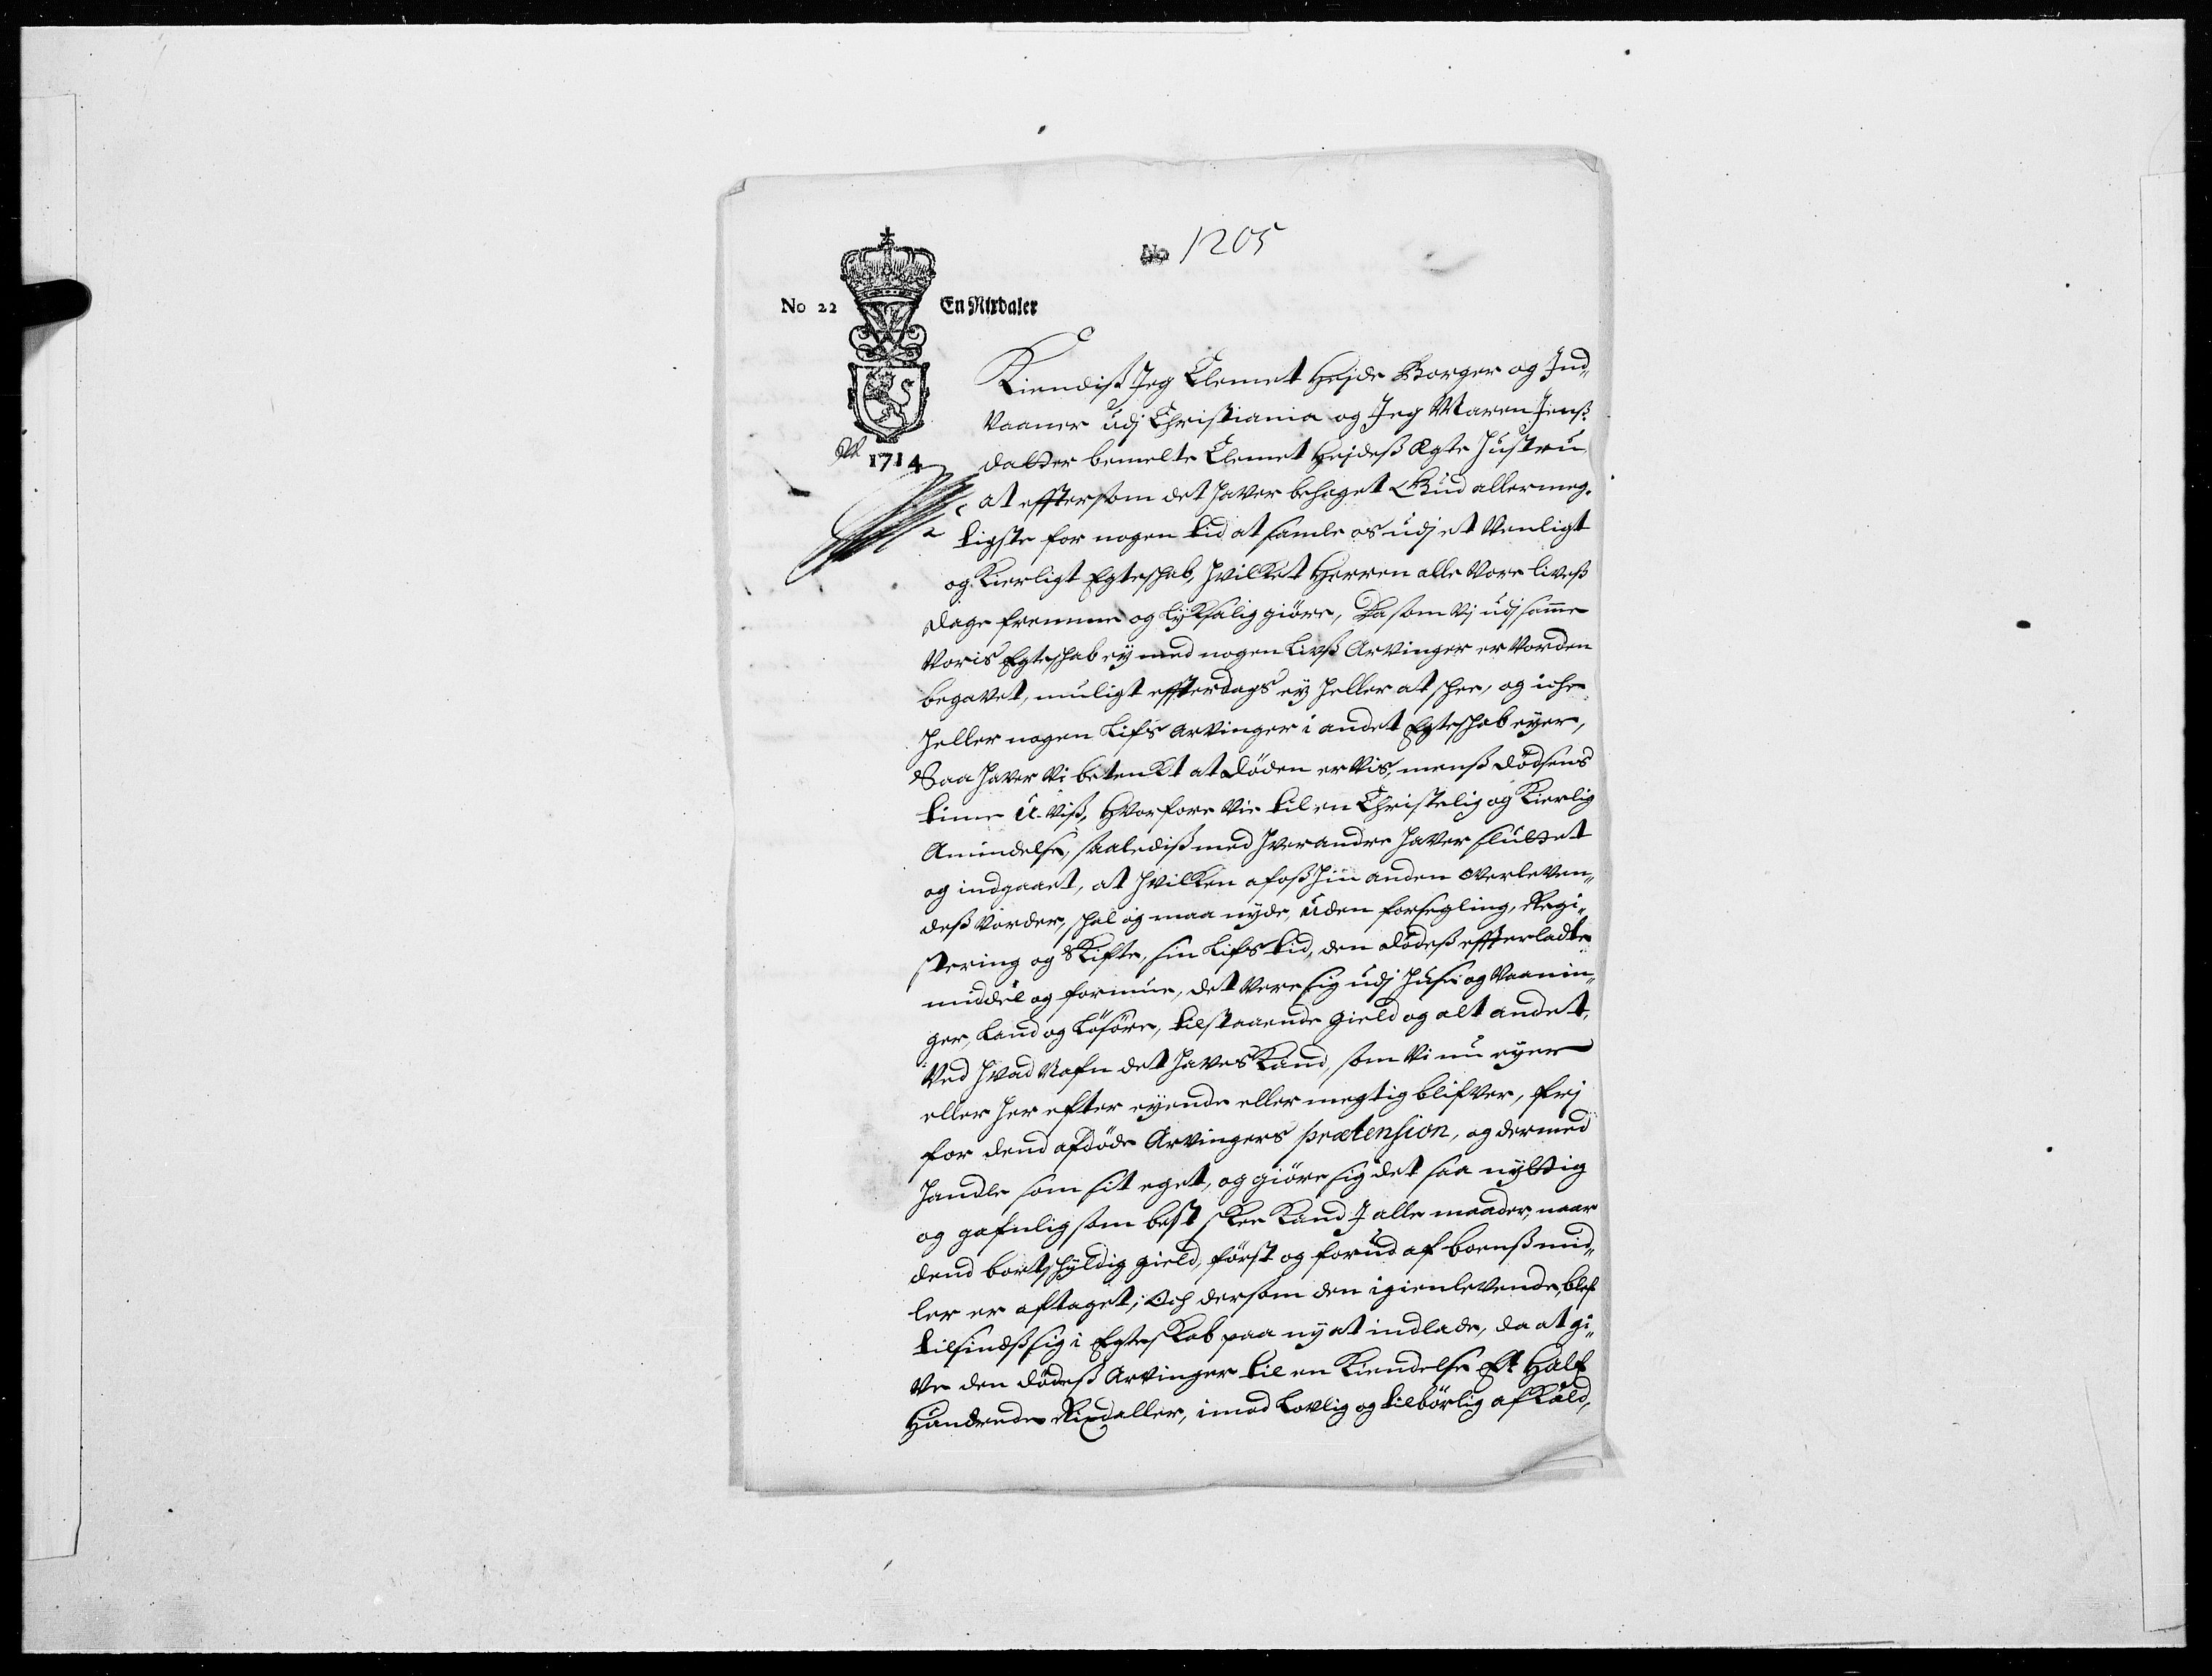 No 1205
No 22
En Rixdaler
1714
Kiendiss Jeg Clemet Hejde Borger og Ind„
vaaner udj Christiania og Jeg Maren Jenss„
datter bemelte Clemet Hejdess Egte Hustru
at effttersom det haver behaget Gud allermeg„
tigste for nogen tid at samle os udj et venligt
og Kierligt Egteschab, hvilket Herren alle vore livess
dage fremme og lyksalig giöre, Da som vj udj samme
voris Egteschab ey med nogen Livss Arvinger er vorden
begavet, muligt effterdags ey heller at schee, og iche
heller nogen Lifs Arvinger i andet Egteschab eyer,
Saa haver vi betenkt at döden er vis, menss dödsens
time u-viss, Hvorfore vie til en Christelig og Kierlig
Amindelse, saalediss med hverandre haver sluttet
og indgaaet, at hvilken af oss hin anden overleven„
dess vorder, schal og maa nyde, uden forsegling, Regi„
stering og Skifte, sin Lifs tid, den dödess effterladte
middel og formue, det vere sig udj Huse og vaanin„
ger, Land og Löföre, tilstaaende gield og alt andet,
ved hvad Nafn det haves Kand, som vi nu eyer
eller her efter eyende eller megtig blifver, frj
for dend afdöde Arvingers prætension, og dermed
handle som sit eget, og giöre sig det saa nyttig
og gafnlig som best skee Kand J alle maader, naar
dend bortschyldig gield, först og forud af boenss mid„
ler er aftaget; Och dersom den igienlevende, blef
tilsindss sig i Egteskab paa ny at indlade, da at gi„
ve den dödess Arvinger til en Kiendelse Et Half
Hundrede Rixdaller, imod Lovlig og tilbörlig afkald,